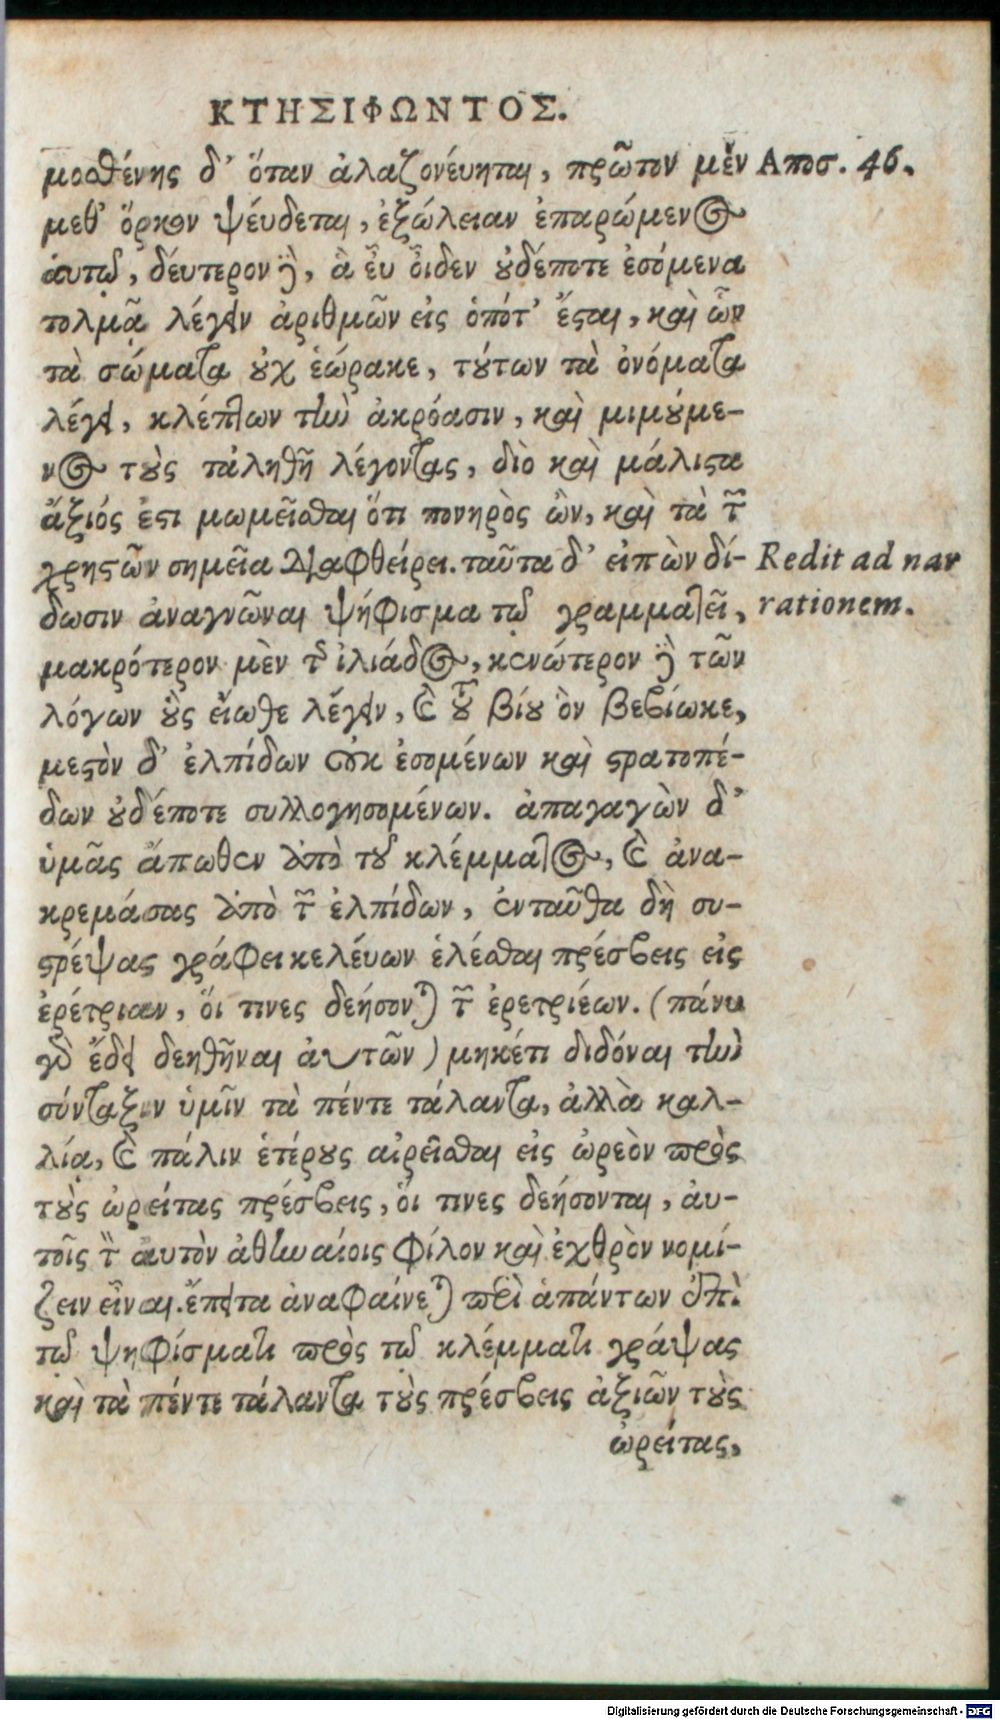 ΚΤΗΣΙΦΩΝΤΟΣ.
μοσθένης δ' ὅταν ἀλαζονεύηται, πρῶτον μὲν Αποσ. 46.
μεθ' ὅρκον ψεύδεται, ἐξώλειαν ἐπαρώμενος
ἁυτῷ, δέυτερον δὲ, ἃ ἒυ ὀῖδεν ουδέποτε ἐσόμενα
τολμᾷ λέγειν ἀριθμῶν εἰς ὁπότ' ἔσται, καὶ ὧν
τὰ σώματα ουχ ἑώρακε, τούτων τὰ ὀνόματα
λέγει, κλέπτων τὴν ἀκρόασιν, καὶ μιμούμε-
νος τοὺς τἀληθῆ λέγοντας, διὸ καὶ μάλιστα
ἄξιός ἐστι μωμεῖσθαι ὅτι πονηρὸς ὢν, καὶ τὰ τῶν
χρηστῶν σημεῖα διαφθείρει. ταῦτα δ' εἰπὼν δί- Redit ad nar
δωσιν ἀναγνῶναι ψήφισμα τῷ γραμματεῖ, rationem.
μακρότερον μὲν τῆς ἰλιάδος, κενώτερον δὲ τῶν
λόγων οὓς εἴωθε λέγειν, καὶ τοῦ βίου ὃν βεβίωκε,
μεστὸν δ' ἐλπίδων οὐκ ἐσομένων καὶ στρατοπέ-
δων ουδέποτε συλλογησομένων. ἀπαγαγὼν δ'
ὑμᾶς ἄπωθεν ἀπὸ τοῦ κλέμματος, καὶ ἀνα-
κρεμάσας ἀπὸ τῶν ἐλπίδων, ἐνταῦθα δὴ συ-
στρέψας γράφει κελέυων ἑλέσθαι πρέσβεις εἰς
ἐρέτριαν, ὅι τινες δεήσονται τῶν ἐρετριέων. (πάνυ
γὰρ ἔδει δεηθῆναι ἀυτῶν) μηκέτι διδόναι τὴν
σύνταξιν ὑμῖν τὰ πέντε τάλαντα, ἀλλὰ καλ-
λίᾳ, καὶ πάλιν ἑτέρους αἱρεῖσθαι εἰς ὠρεὸν πρὸς
τοὺς ὠρείτας πρέσβεις, ὅι τινες δεήσονται, ἀυ-
τοῖς τὸν ἀυτὸν ἀθηναίοις φίλον καὶ ἐχθρὸν νομί-
ζειν εἶναι. ἔπειτα ἀναφαίνεται περὶ ἁπάντων ἐπὶ
τῷ ψηφίσματι πρὸς τῷ κλέμματι γράψας
καὶ τὰ πέντε τάλαντα τοὺς πρέσβεις ἀξιῶν τοὺς
ὠρείτας,
Digitalisierung gefördert durch die Deutsche Forschungsgemeinschaft - DFG